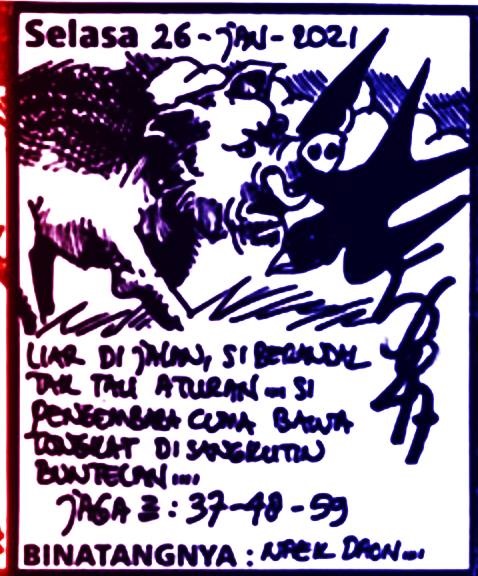 Selasa 26-jAN-2021
LIAR DI jALAN, SI BERANDAL
TAK TAU ATURAN... SI
PENGEMBARA CUMA BAWA
TONGKAT DI SANGKUTIN
BUNTELAN....
jAGA 2: 37-48-59
BINATANGNYA: NAEK DAON...